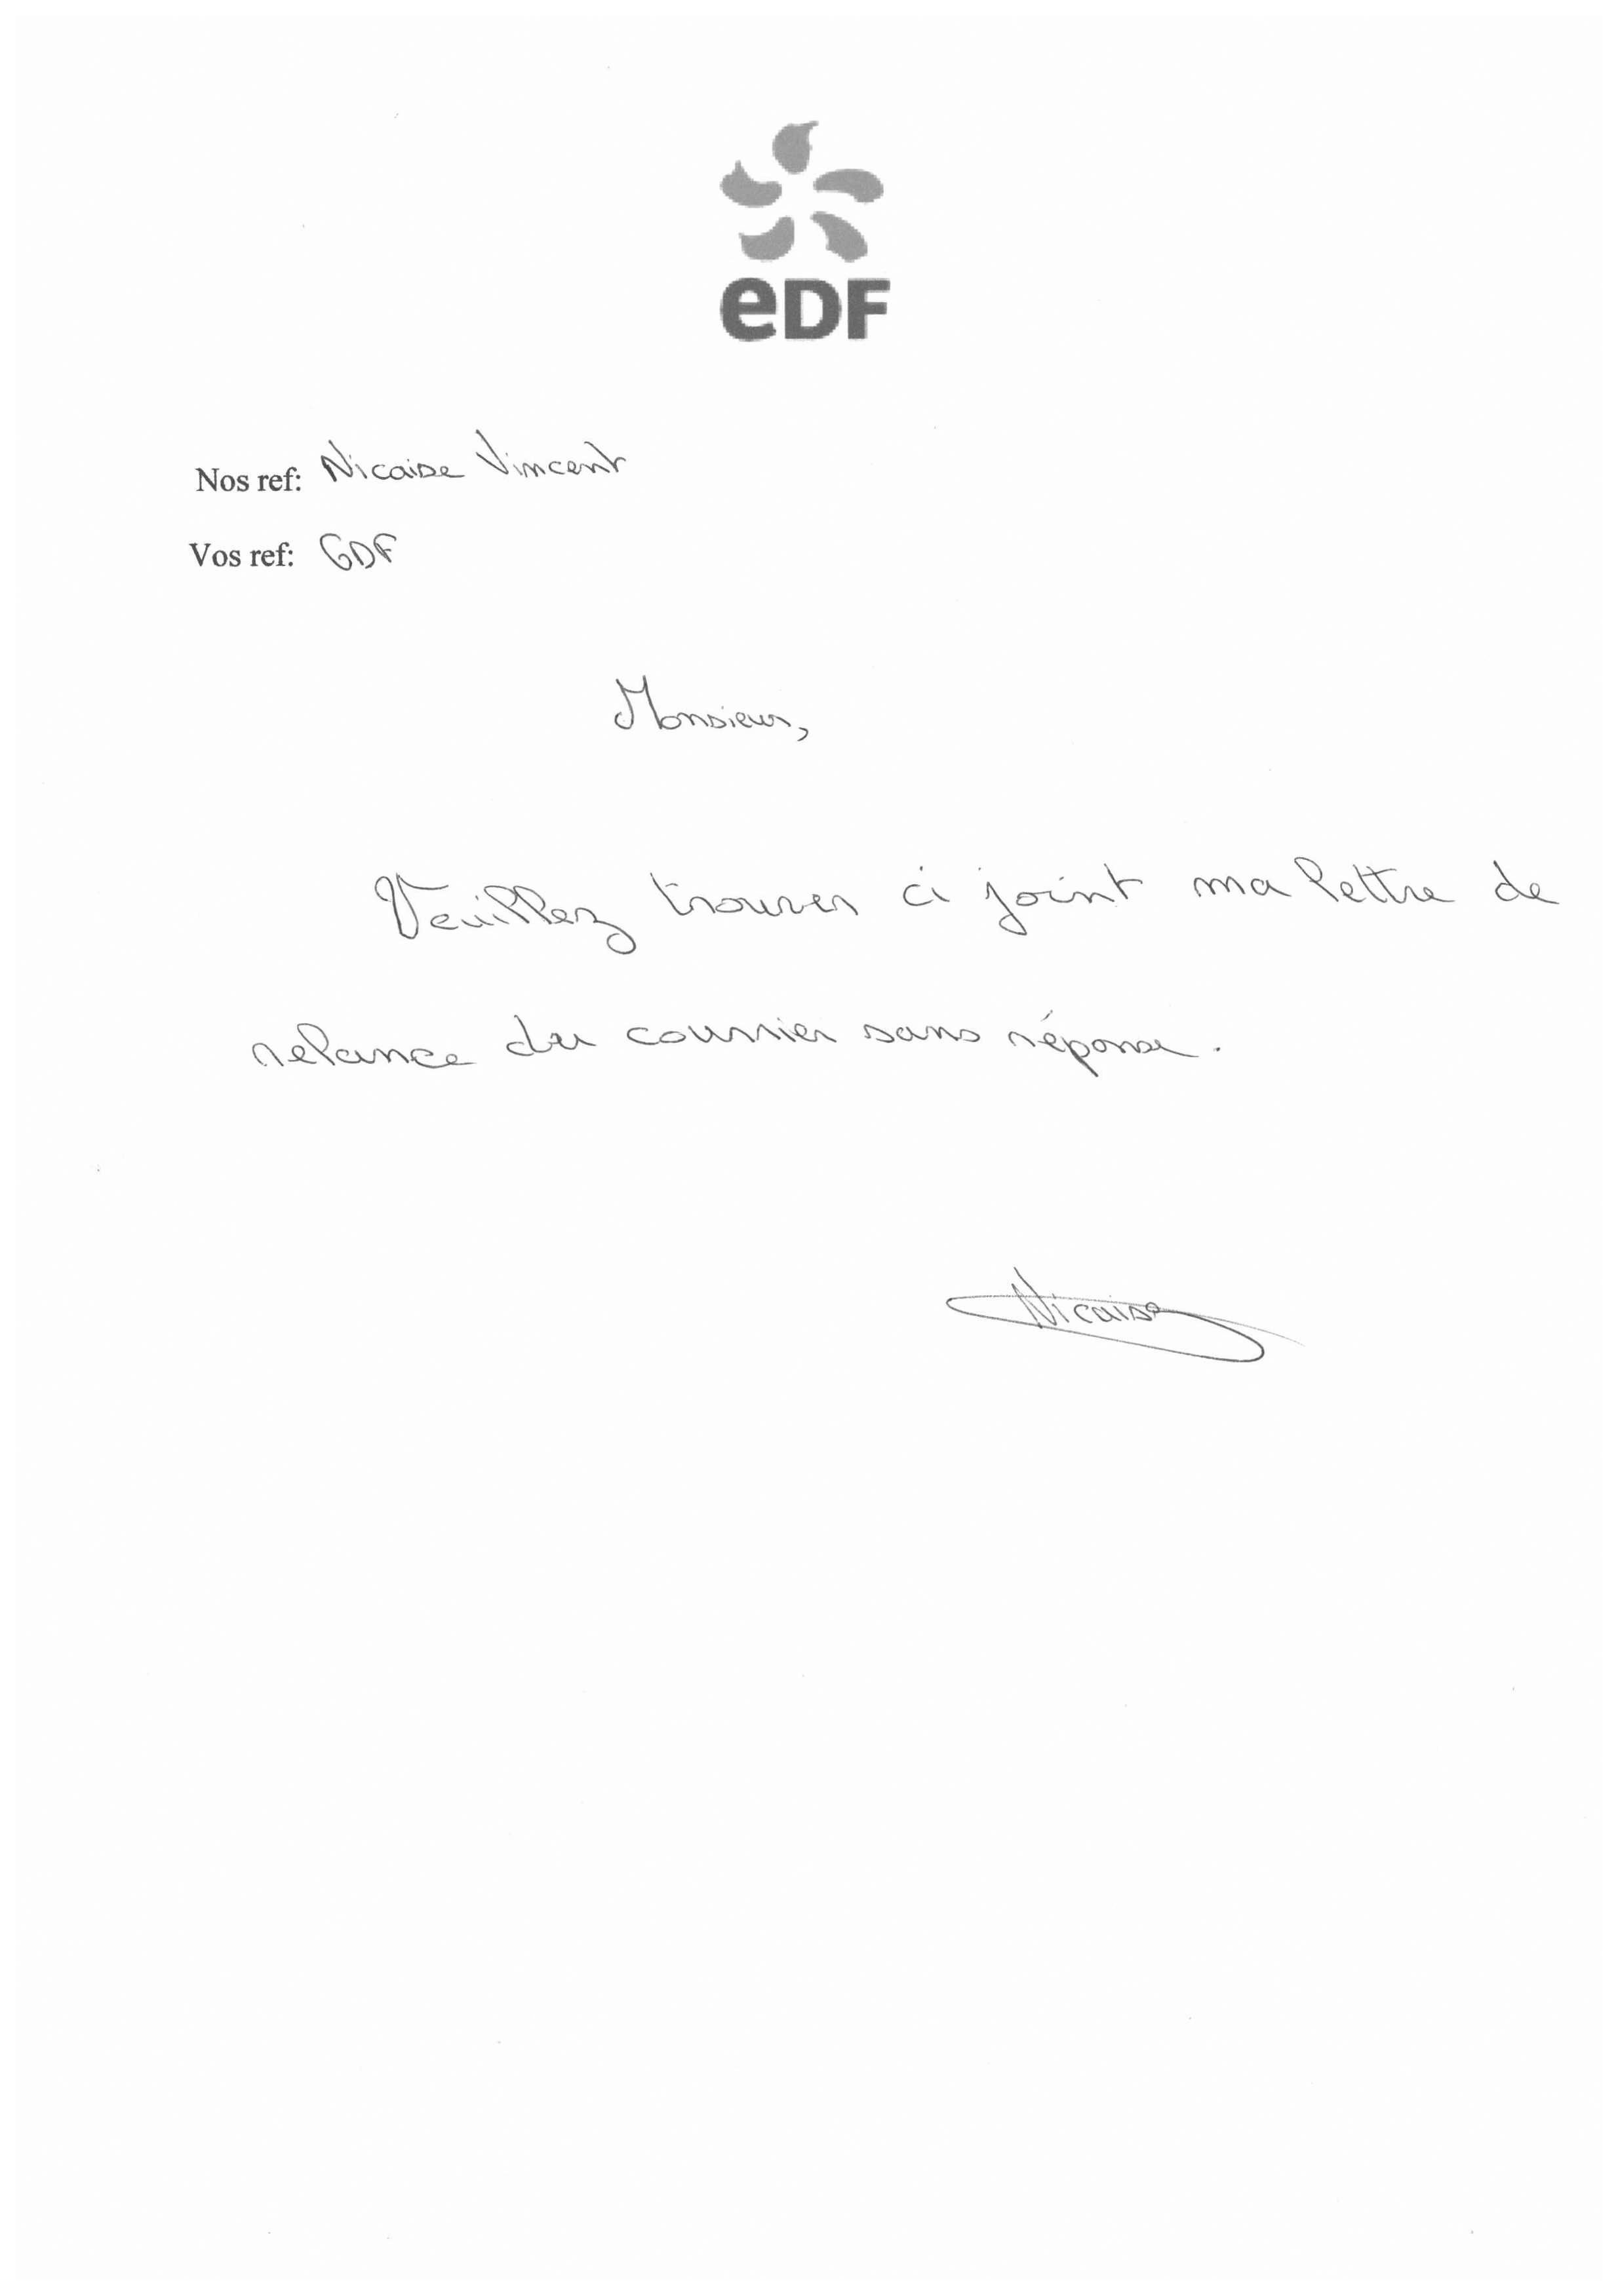 eDF
Nos ref: Nicaise Vincent
Vos ref: GDF
Monsieur,
Veuillez trouver ci joint ma lettre de
relance du courrier sans réponse.
Nicaise